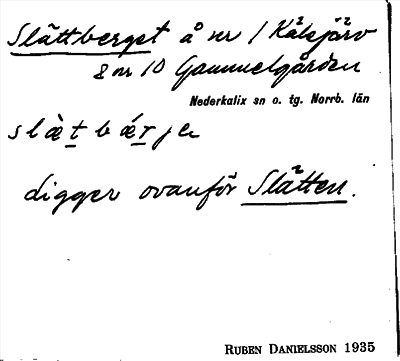 Slättberget å nr 1 Kälsjärv
& nr 10 Gammelgården
Nederkalix sn o. tg. Norrb. län
slà̀tbǽrjə
ligger ovanför Slätten.
RUBEN DANIELSSON 1935